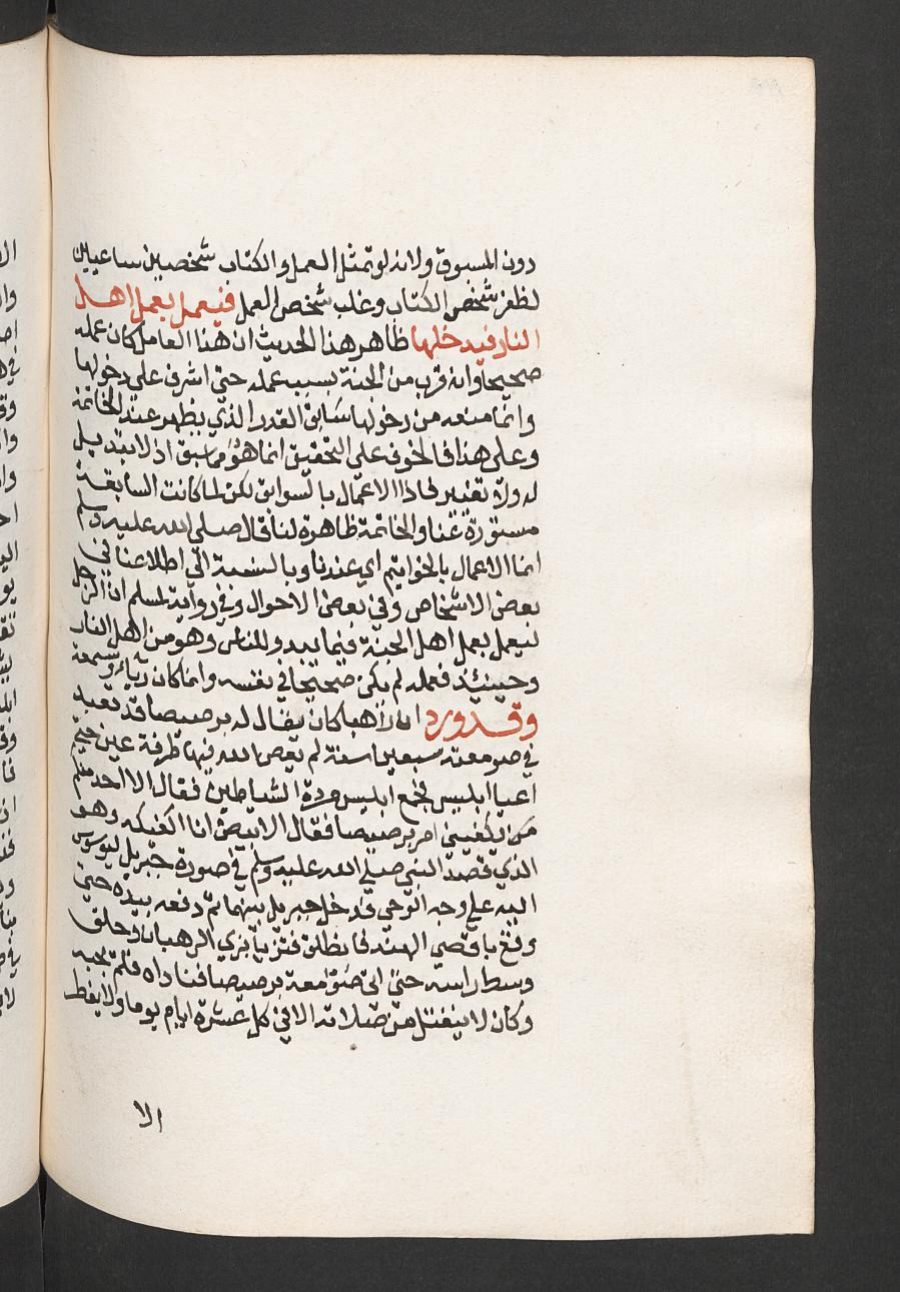 دون المسبوق ولانه لو تمثل العمل والكتاب شخصين ساعيين
لظفر شخص الكتاب وغلب شخص العمل فيعمل بعمل اهل
النار فيدخلها ظاهر هذا الحديث ان هذا العامل كان عمله
صحيحا وانه قرب من الجنة بسبب عمله حتى اشرف على دخولها
وانما منعه من دخولها سابق القدر الذي يظهر عند الخاتمة
وعلى هذا فالخوف على التحقيق انما هو مما سبق اذ لا تبديل
له ولا تغيير فاذا الاعمال بالسوابق لكن لما كانت السابقة
مستورة عنا والخاتمة ظاهرة لنا قال صلى الله عليه وسلم
انما الاعمال بالخواتيم اي عندنا وبالنسبة الى اطلاعنا في
بعض الاشخاص وفي بعض الاحوال وفي رواية لمسلم ان الرجل
ليعمل بعمل اهل الجنة فيما يبدو للناس وهو من اهل النار
وحينئذ فعمله لم يكن صحيحا في نفسه وانما كان رياء وسمعة
وقد ورد ان راهبا كان يقال له برصيصا قد تعبد
في صومعته سبعين سنة لم يعص الله فيها طرفة عين حتى
اعيا ابليس فجمع ابليس مردة الشياطين فقال الا احد منكم
من يكفيني امر برصيصا فقال الابيض انا اكفيكه وهو
الذي قصد النبي صلى الله عليه وسلم في صورة جبريل ليوسوس
اليه على وجه الوحي فدخل جبريل بينهما ثم دفعه بيده حتى
وقع باقصى الهند فانطلق فتزيا بزي الرهبان وحلق
وسط راسه حتى اتى صومعة برصيصا فناداه فلم يجبه
وكان لا ينفتل من صلاته الا في كل عشرة ايام يوما ولا يفطر
الا